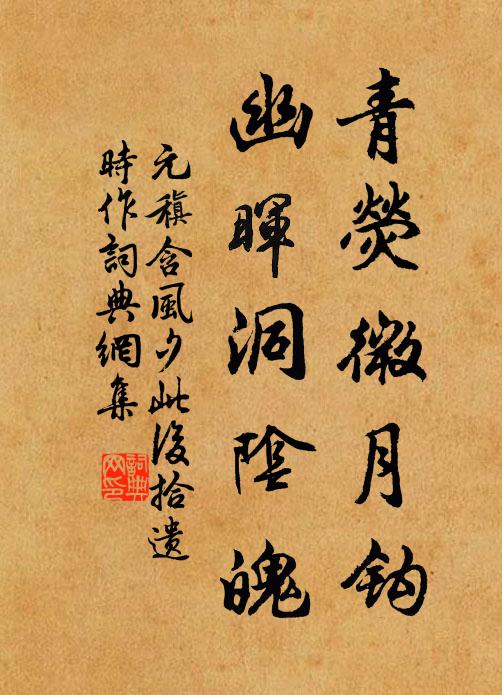 青熒微月鈎
幽暉洞陰魄
元稹含風夕此後拾遺
時作詞典網集
詞典
网印